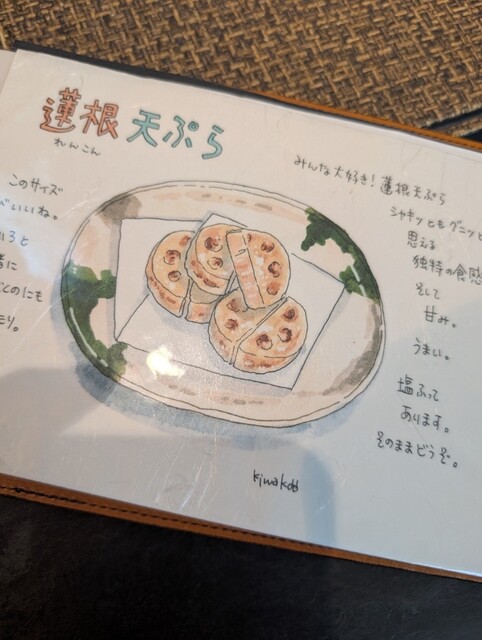 蓮根 天ぷら
れんこん
みんな大好き！蓮根天ぷら
シャキッともグニッと
思える
独特の食感
そして
甘み。
うまい。
塩ふって
あります。
そのままどうぞ。
このサイズ
がいいね。
ろと
に
のにも
り。
kinako